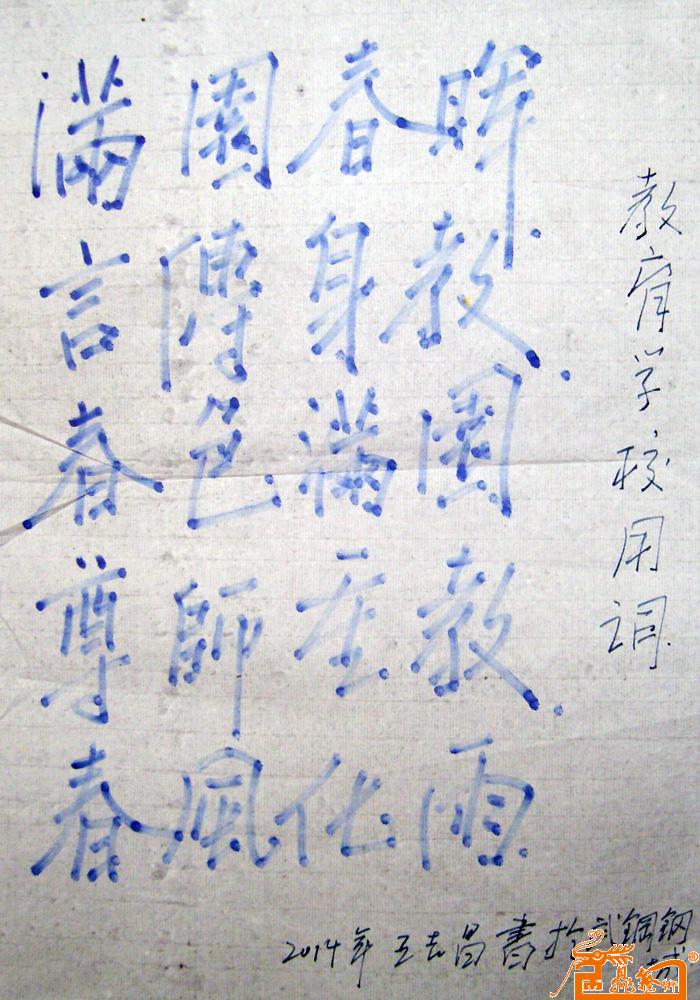 滿園春暉.
言傳身教.
春色滿園
尊師在教.
春風化雨.
教育学校用词.
2014年王志昌書於武鋼钢城